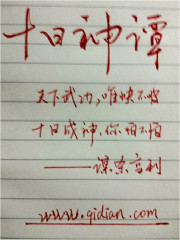 十日神谭
天下武功,唯快不破
十日成神,你怕不怕
——谋杀亨利
www.qidian.com